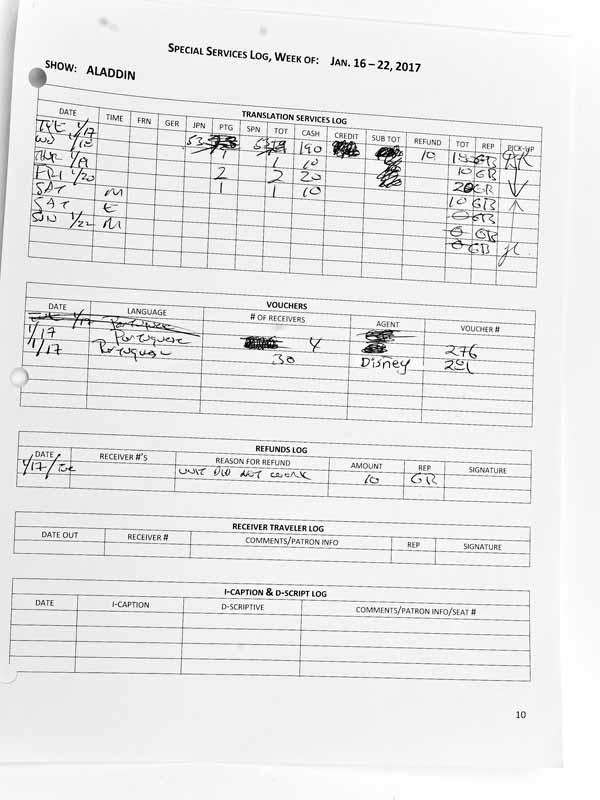 SPECIAL SERVICES LOG, WEEK OF: JAN. 16 – 22, 2017
SHOW: ALADDIN
TRANSLATION SERVICES LOG
DATE TIME FRN GER JPN PTG SPN TOT CASH CREDIT SUB TOT REFUND TOT REP PICK-UP
TUE 1/17 53 53 190 10 GB
WED 1/18 1 1 10 10 GB
THUR 1/19 2 2 20 20 GR
FRI 1/20 1 1 10 10 GB
SAT M 0 GB
SAT E 0 GB
SUN 1/22 M 0 GB
VOUCHERS
DATE LANGUAGE # OF RECEIVERS AGENT VOUCHER #
1/17 Portuguese
1/17 Portuguese 4 276
1/17 Portuguese 30 Disney 291
REFUNDS LOG
DATE RECEIVER #'S REASON FOR REFUND AMOUNT REP SIGNATURE
1/17/Tue UNIT DID NOT WORK 10 GR
RECEIVER TRAVELER LOG
DATE OUT RECEIVER # COMMENTS/PATRON INFO REP SIGNATURE
I-CAPTION & D-SCRIPT LOG
DATE I-CAPTION D-SCRIPTIVE COMMENTS/PATRON INFO/SEAT #
10